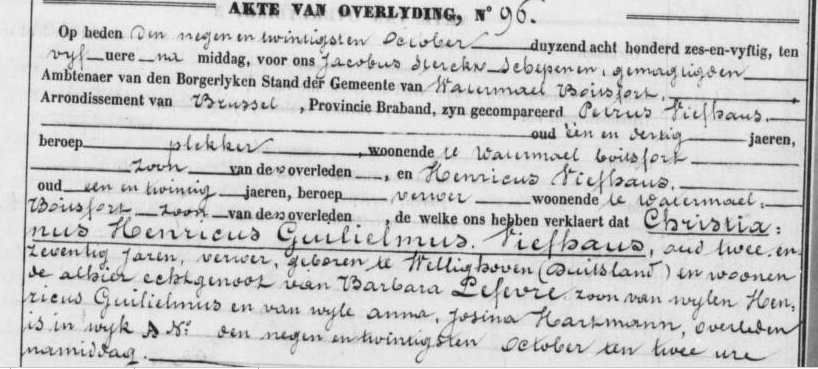 AKTE VAN OVERLYDING, N° 96.
Op heden den negen en twintigsten October duyzend acht honderd zes-en-vyftig, ten
vyf uere na middag, voor ons Jacobus Sterckx Schepenen, gemagtigden
Ambtenaer van den Borgerlyken Stand der Gemeente van Watermael Boitsfort,
Arrondissement van Brussel, Provincie Braband, zyn gecompareerd Petrus Viefhaus.
oud een en dertig jaeren,
beroep plekker, woonende te Watermael boitsfort
zoon van den overleden, en Henricus Viefhaus.
oud een en twintig jaeren, beroep verwer woonende te watermael-
Boitsfort zoon van den overleden, de welke ons hebben verklaert dat Christia:
nus Henricus Guilielmus. Viefhaus, oud twee en
zeventig jaren, verwer, geboren te Wellighoven (Duitsland) en woonen
de alhier echtgenoot van Barbara Lefevre zoon van wylen Hen,
ricus Guilielmus en van wyle anna, Josina Hartmann, overleden
is in wyk A N°: den negen en twintigsten October ten twee ure
namiddag.